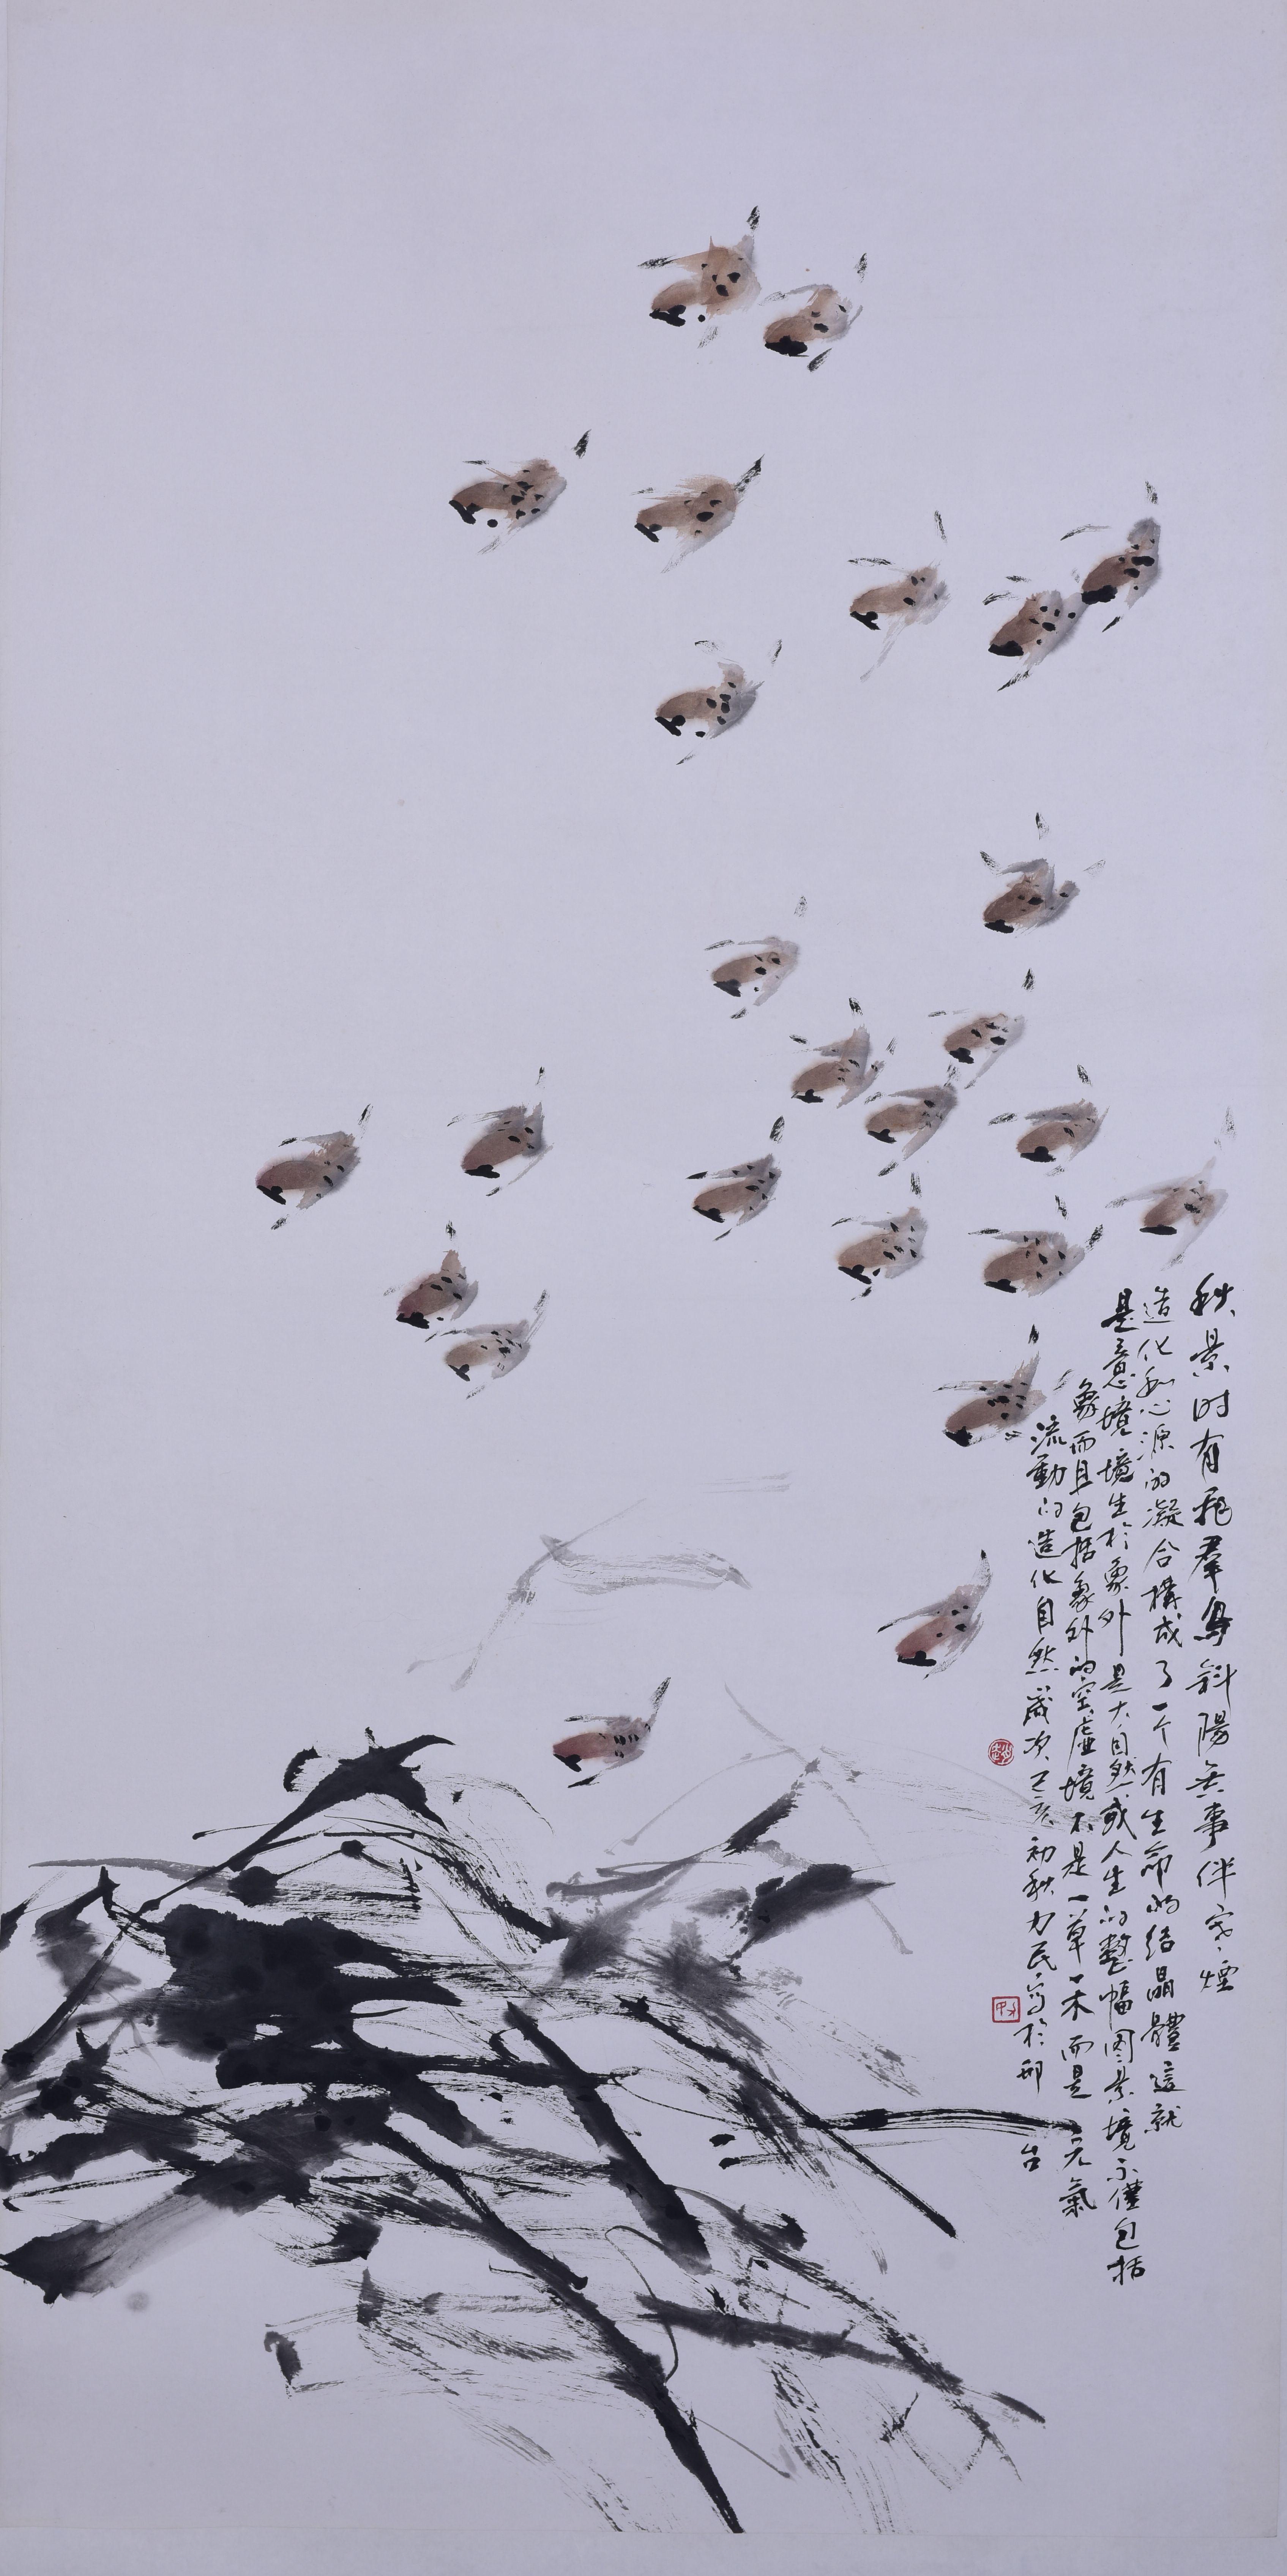 秋景时有飛羣鳥斜陽無事伴寒煙
造化和心源的凝合構成了一个有生命的结晶體這就
是意境境生於象外是大自然或人生的整幅图景境不僅包括
象而且包括象外的空虚境不是一草一木而是一元氣
流動的造化自然歲次己亥初秋力民寫於邢台